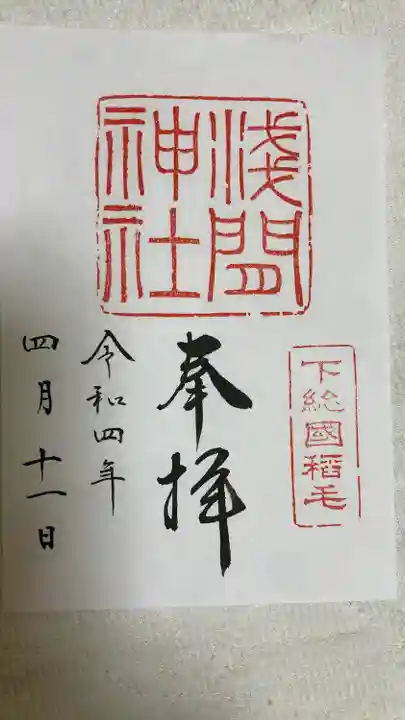 淺間
神社
下総國稻毛
奉拝
令和四年
四月十一日